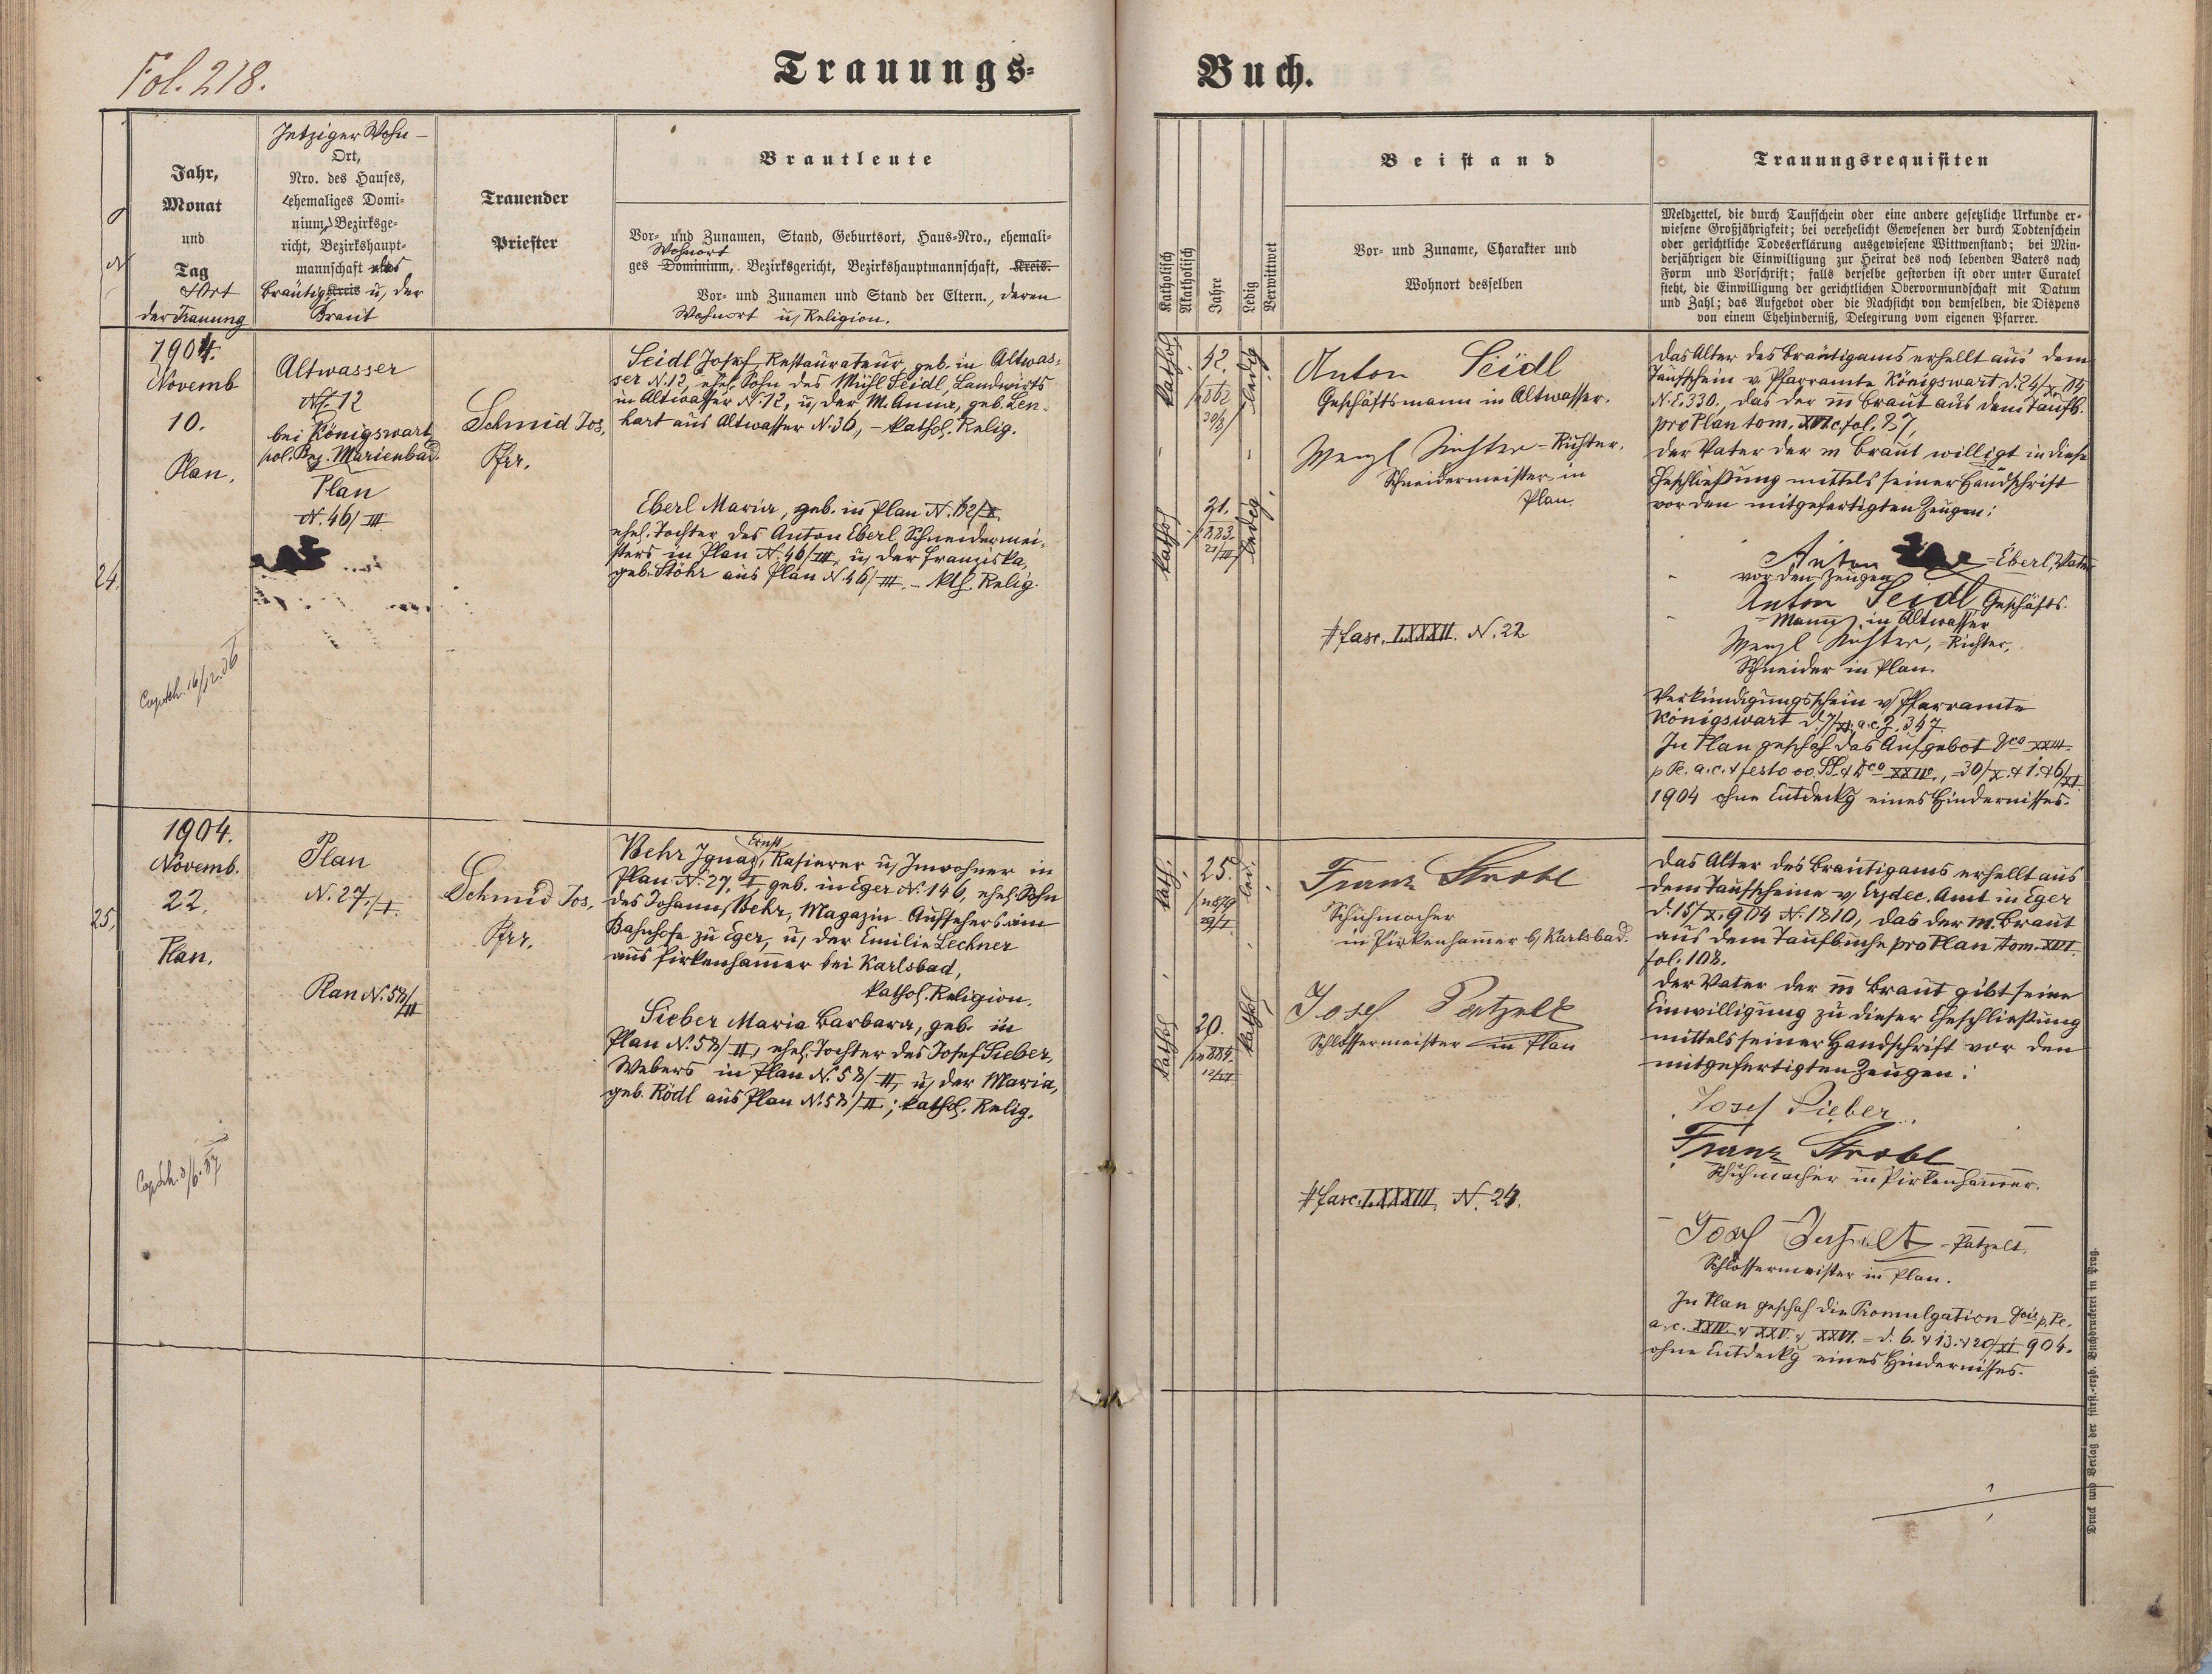 Fol. 218.
Trauungs-
Buch.
Jahr,
Monat
und
Tag
Ort
der Trauung
Jetziger Wohn-
Ort,
Nro. des Hauses,
(ehemaliges Domi-
nium) Bezirksge-
richt, Bezirkshaupt-
mannschaft des
Bräutig. Kreis u. der
Braut
Trauender
Priester
Brautleute
Vor- und Zunamen, Stand, Geburtsort, Haus-Nro., ehemali-
Wohnort
ges Dominium, Bezirksgericht, Bezirkshauptmannschaft, Kreis.
Vor- und Zunamen und Stand der Eltern., deren
Wohnort u. Religion.
Katholisch
Akatholisch
Jahre
Ledig
Verwittwet
Beistand
Vor- und Zuname, Charakter und
Wohnort desselben
Trauungsrequisiten
Meldzettel, die durch Taufschein oder eine andere gesetzliche Urkunde er-
wiesene Großjährigkeit; bei verehelicht Gewesenen der durch Todtenschein
oder gerichtliche Todeserklärung ausgewiesene Wittwenstand; bei Min-
derjährigen die Einwilligung zur Heirat des noch lebenden Vaters nach
Form und Vorschrift; falls derselbe gestorben ist oder unter Curatel
steht, die Einwilligung der gerichtlichen Obervormundschaft mit Datum
und Zahl; das Aufgebot oder die Nachsicht von demselben, die Dispens
von einem Ehehinderniß, Delegirung vom eigenen Pfarrer.
24.
1904.
Novemb
10.
Plan.
Altwasser
N. 12
bei Königswart,
pol. Bez. Marienbad.
Plan
N. 46/III
Schmid Jos.
Pfr.
Seidl Josef, Restaurateur, geb. in Altwas-
ser N. 12, ehel. Sohn des Michl Seidl, Landwirts
in Altwasser N. 12, u. der M. Anna, geb. Len-
hart aus Altwasser N. 36, – kathol. Relig.
Eberl Maria, geb. in Plan N.
ehel. Tochter des Anton Eberl Schneidermei-
sters in Plan N. 46/III, u. der Franziska,
geb. Stöhr aus Plan N. 46/III. – kth. Relig.
kathol
42.
1862
30/8
ledig
kathol
21.
1883.
ledig
Anton Seidl
Geschäftsmann in Altwasser.
Wenzl Richter – Richter,
Schneidermeister in
Plan.
# fasc. LXXXII. N. 22
das Alter des Bräutigams erhellt aus dem
Taufschein v. Pfarramte Königswart d. 24/X 04
N. E. 330., das der m. Braut aus dem Taufb.
pro Plan tom. XVI c. fol. 87,
der Vater der m. Braut willigt in diese
Eheschließung mittels seiner Handschrift
vor den mitgefertigten Zeugen:
Anton = Eberl, Vater
vor den Zeugen
Anton Seidl Geschäfts-
Mann in Altwasser
Wenzl Richter, = Richter,
Schneider in Plan.
Verkündigungsschein v. Pfarramte
Königswart d. 7/XI a. c. Z. 347.
In Plan geschah das Aufgebot Dca XXIII.
p. Pe. a. c. & festo oo. SS. & Dca XXIV., = 30/X. & 1. & 6/XI.
1904 ohne Entdeckg eines Hindernisses.
25.
1904.
Novemb.
22.
Plan.
Plan
N. 27/I.
Plan N. 58/II
Schmid Jos.
Pfr.
Ernst
Behr Ignaz, Rasierer u. Inwohner in
Plan N. 27, I, geb. in Eger N. 146, ehel. Sohn
des Johann Behr, Magazin-Aufsehers am
Bahnhofe zu Eger, u. der Emilie Lechner
aus Pirkenhammer bei Karlsbad,
kathol. Religion.
Sieber Maria Barbara, geb. in
Plan N. 58/II, ehel. Tochter des Josef Sieber,
Webers in Plan N. 58/II, u. der Maria,
geb. Rödl aus Plan N. 58/II; kathol. Relig.
kath.
25.
1879
29/I
led.
kathol
20.
1884.
Franz Strobl
Schuhmacher
in Pirkenhammer b. Karlsbad.
Josef Patzelt
Schlossermeister in Plan
# fasc. LXXXIII. N. 24.
das Alter des Bräutigams erhellt aus
dem Taufscheine v. Erzdec. Amt in Eger
d. 15/X. 904 N. 1810, das der m. Braut
aus dem Taufbuche pro Plan tom. XVI.
fol. 108.
der Vater der m. Braut gibt seine
Einwilligung zu dieser Eheschließung
mittels seiner Handschrift vor den
mitgefertigten Zeugen:
Josef Sieber
Franz Strobl
Schuhmacher in Pirkenhammer.
Josef Patzelt = Patzelt,
Schlossermeister in Plan.
In Plan geschah die Promulgation Dcis p. Pe.
a. c. XXIV. & XXV. & XXVI. = d. 6. & 13. & 20/XI 904.
ohne Entdeckg eines Hindernisses.
Druck und Verlag der fürst.-erzb. Buchdruckerei in Prag.